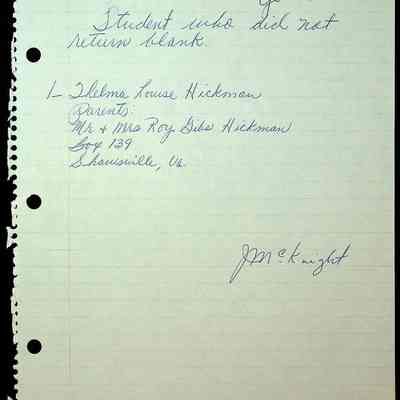 Student who did not
return blank.
1- Thelma Louise Hickman
Parents:
Mr + Mrs Roy Gibs Hickman
Box 139
Shawsville, Va.
J McKnight